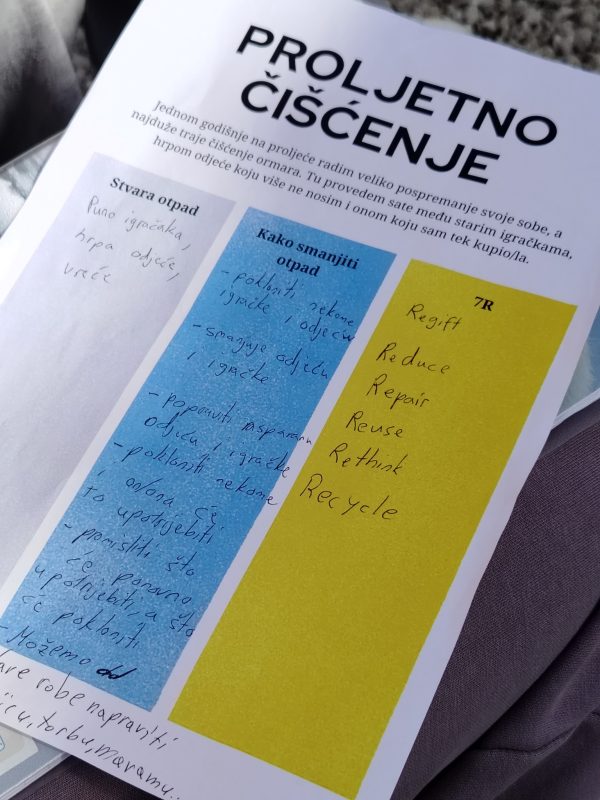 PROLJETNO
ČIŠĆENJE
Jednom godišnje na proljeće radim veliko pospremanje svoje sobe, a
najduže traje čišćenje ormara. Tu provedem sate među starim igračkama,
hrpom odjeće koju više ne nosim i onom koju sam tek kupio/la.
Stvara otpad
Puno igračaka,
hrpa odjeće,
vreće
Kako smanjiti
otpad
- pokloniti nekome
igračke i odjeću
- smanjuje odjeću
i igračke
- popraviti
odjeću i igračke
- pokloniti nekome
i on/ona će
to upotrijebiti
- promisliti što
će ponovno
upotrijebiti, a što
će pokloniti
- Možemo od
robe napraviti
torbu, maramu...
7R
Regift
Reduce
Repair
Reuse
Rethink
Recycle